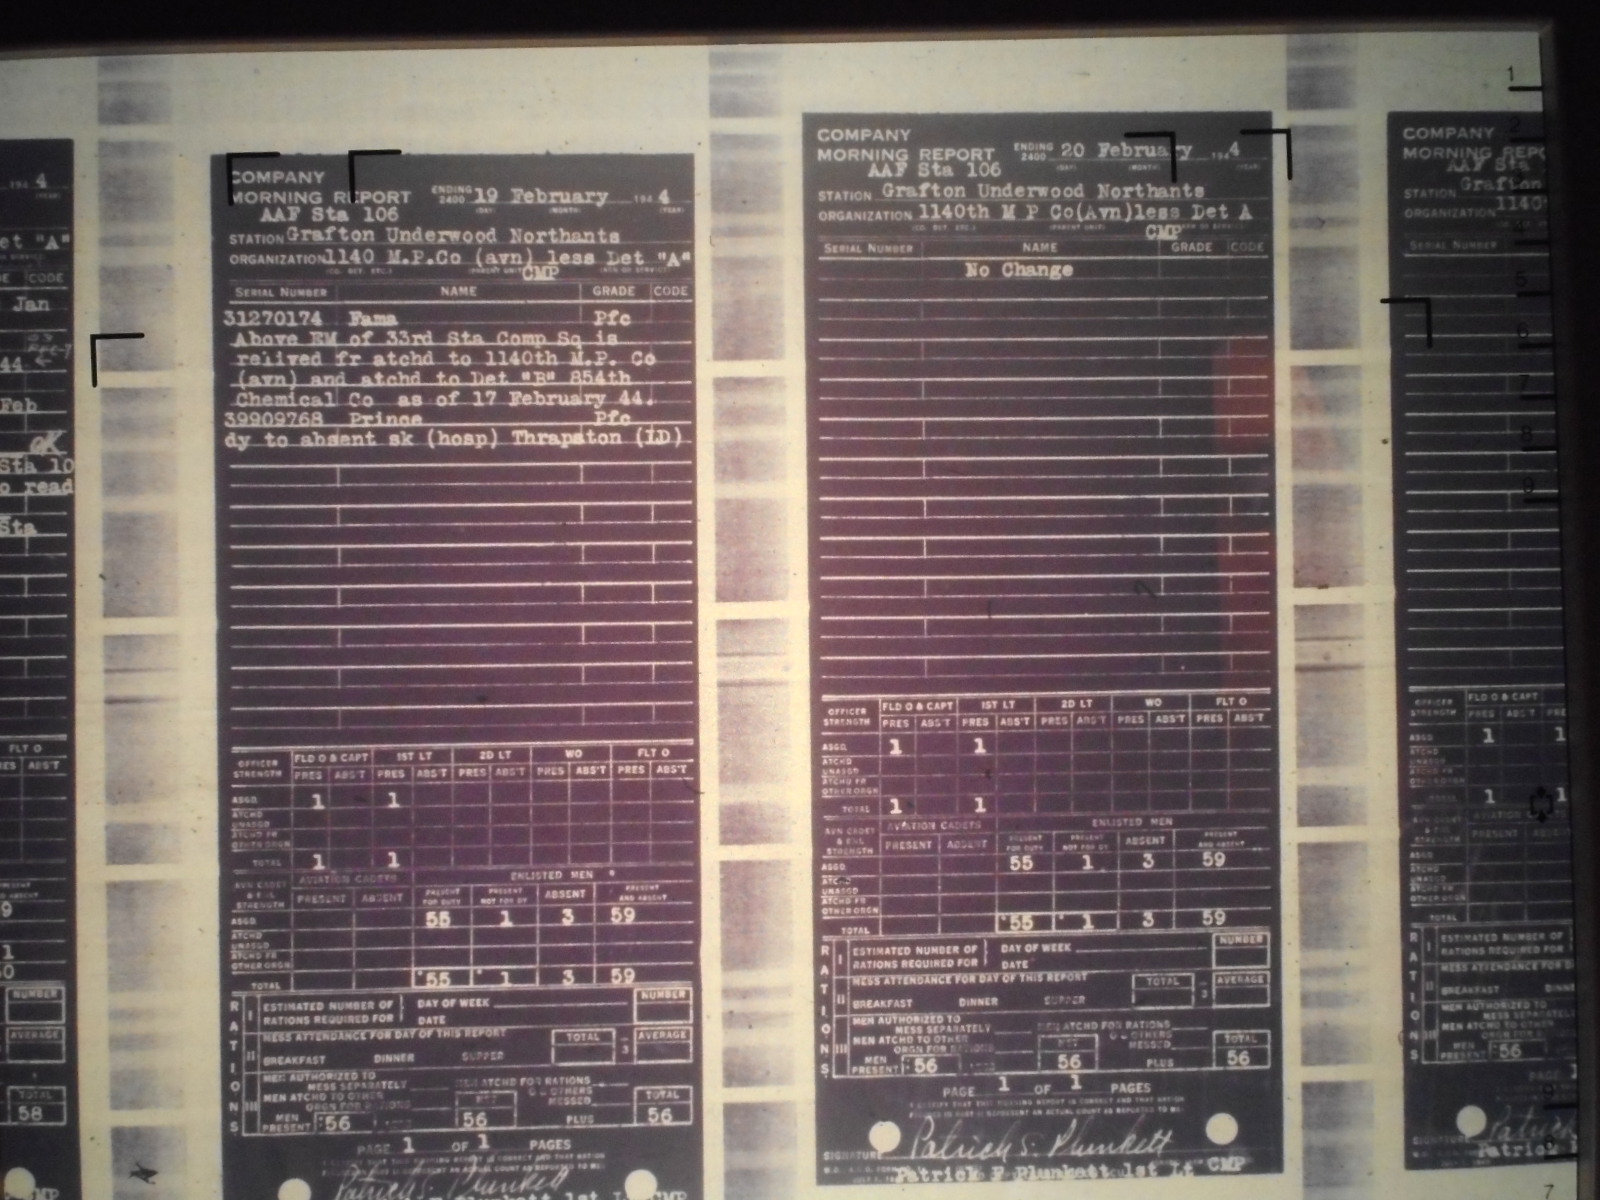 194 4
et "A"
CODE
Jan
44
Feb
OK
Sta 10
o read
Sta
FLT O
ABS'T
9
1
NUMBER
AVERAGE
TOTAL
58
COMPANY
MORNING REPORT ENDING 2400 19 February 194 4
AAF Sta 106
STATION Grafton Underwood Northants
ORGANIZATION 1140 M.P.Co (avn) less Det "A"
CMP
SERIAL NUMBER NAME GRADE CODE
31270174 Fama Pfc
Above EM of 33rd Sta Comp Sq is
relived fr atchd to 1140th M.P. Co
(avn) and atchd to Det "B" 854th
Chemical Co as of 17 February 44.
39909768 Prince Pfc
dy to absent sk (hosp) Thrapston (LD)
OFFICER STRENGTH FLD O & CAPT 1ST LT 2D LT WO FLT O
PRES ABS'T PRES ABS'T PRES ABS'T PRES ABS'T PRES ABS'T
ASGD. 1 1
ATCHD UNASGD
ATCHD FR OTHER ORGN
TOTAL 1 1
AVN CADET & ENL STRENGTH AVIATION CADETS ENLISTED MEN
PRESENT ABSENT PRESENT FOR DUTY PRESENT NOT FOR DY ABSENT PRESENT AND ABSENT
ASGD. 55 1 3 59
ATCHD UNASGD
ATCHD FR OTHER ORGN
TOTAL 55 1 3 59
RATIONS
I ESTIMATED NUMBER OF RATIONS REQUIRED FOR DAY OF WEEK DATE NUMBER
II MESS ATTENDANCE FOR DAY OF THIS REPORT TOTAL ÷ 3 AVERAGE
BREAKFAST DINNER SUPPER
III MEN AUTHORIZED TO MESS SEPARATELY MEN ATCHD FOR RATIONS
MEN ATCHD TO OTHER ORGN FOR RATIONS MESSED TOTAL
MEN PRESENT 56 56 PLUS 56
PAGE 1 OF 1 PAGES
Patrick S. Plunkett
Plunkett 1st Lt CMP
COMPANY
MORNING REPORT ENDING 2400 20 February 194 4
AAF Sta 106
STATION Grafton Underwood Northants
ORGANIZATION 1140th M P Co(Avn)less Det A
CMP
SERIAL NUMBER NAME GRADE CODE
No Change
OFFICER STRENGTH FLD O & CAPT 1ST LT 2D LT WO FLT O
PRES ABS'T PRES ABS'T PRES ABS'T PRES ABS'T PRES ABS'T
ASGD. 1 1
ATCHD UNASGD
ATCHD FR OTHER ORGN
TOTAL 1 1
AVN CADET & ENL STRENGTH AVIATION CADETS ENLISTED MEN
PRESENT ABSENT PRESENT FOR DUTY PRESENT NOT FOR DY ABSENT PRESENT AND ABSENT
ASGD. 55 1 3 59
ATCHD UNASGD
ATCHD FR OTHER ORGN
TOTAL 55 1 3 59
RATIONS
I ESTIMATED NUMBER OF RATIONS REQUIRED FOR DAY OF WEEK DATE NUMBER
II MESS ATTENDANCE FOR DAY OF THIS REPORT TOTAL ÷ 3 AVERAGE
BREAKFAST DINNER SUPPER
III MEN AUTHORIZED TO MESS SEPARATELY MEN ATCHD FOR RATIONS
MEN ATCHD TO OTHER ORGN FOR RATIONS MESSED TOTAL
MEN PRESENT 56 56 PLUS 56
PAGE 1 OF 1 PAGES
SIGNATURE Patrick S. Plunkett
Patrick F Plunkett 1st Lt CMP
COMPANY
MORNING REPO
AAF Sta
STATION Grafton
ORGANIZATION 1140
SERIAL NUMBER
OFFICER STRENGTH FLD O & CAPT
PRES ABS'T PRE
ASGD. 1 1
TOTAL 1 1
PRESENT
TOTAL
ESTIMATED NUMBER OF
RATIONS REQUIRED FOR
MESS ATTENDANCE FOR D
BREAKFAST DINN
MEN AUTHORIZED TO
MESS SEPARATELY
MEN ATCHD TO OTHER
MEN PRESENT 56
PAGE 1
SIGNATURE Patrick
Patrick
1
2
5
6
7
8
9